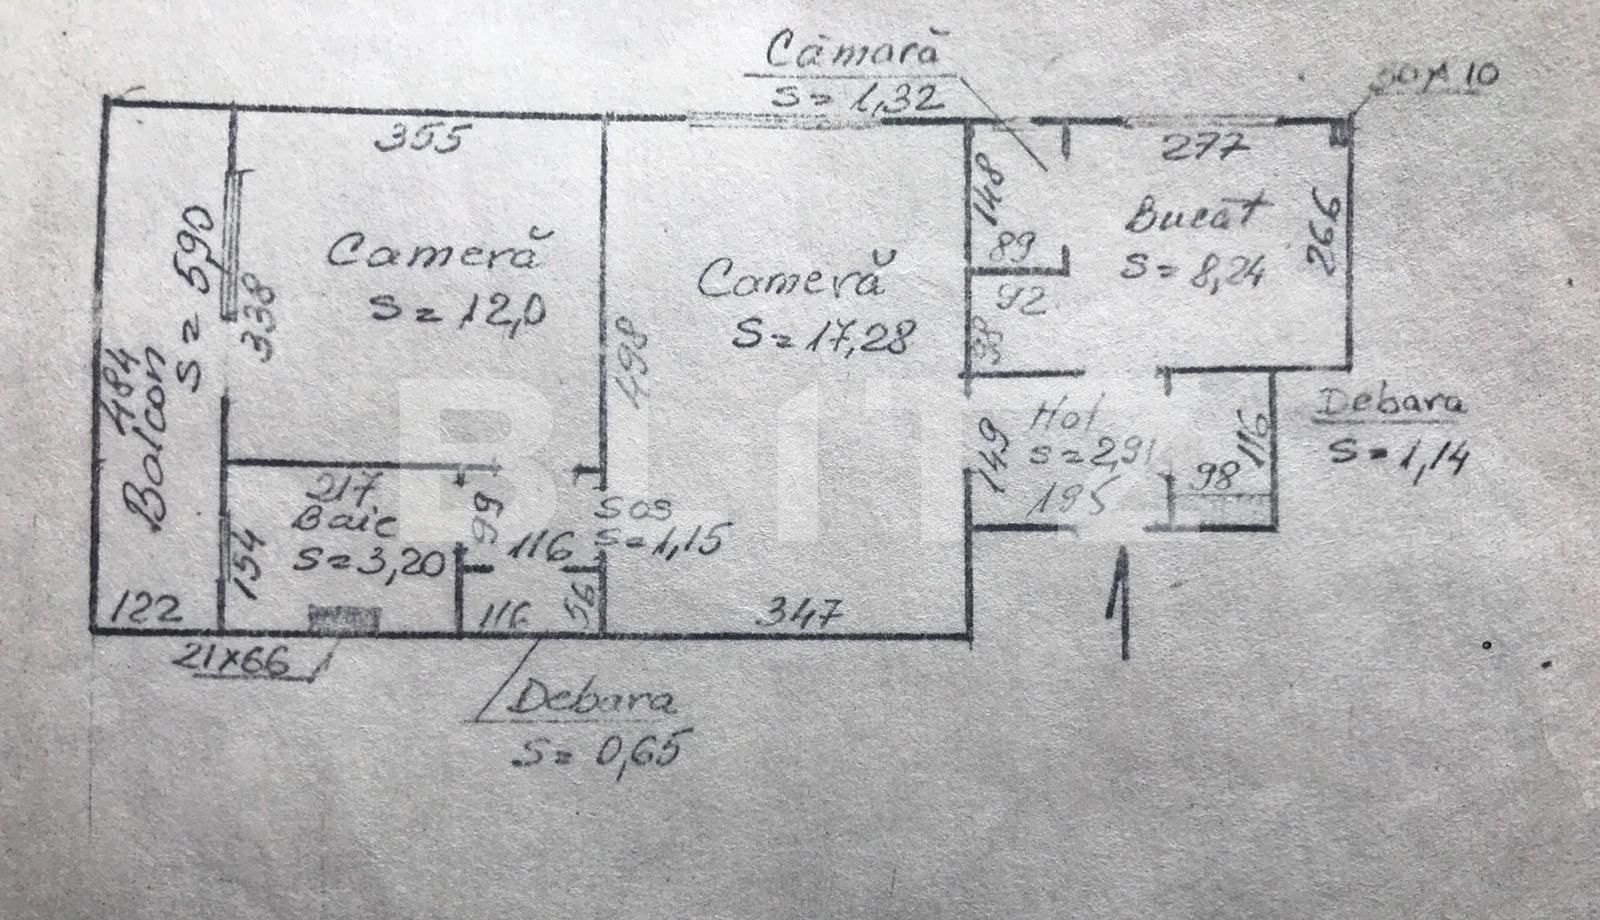 Cămară
S= 1,32
355
277
148
266
Bucăt
S= 8,24
89
92
98
Cameră
S= 12,0
338
S= 5,90
484
Balcon
122
Cameră
S= 17,28
498
347
Hol
S=2,91
149
195
116
98
Debara
S=1,14
217
Baie
S=3,20
154
99
Sas
S=1,15
116
116
56
21x66
Debara
S= 0,65
BLITZ